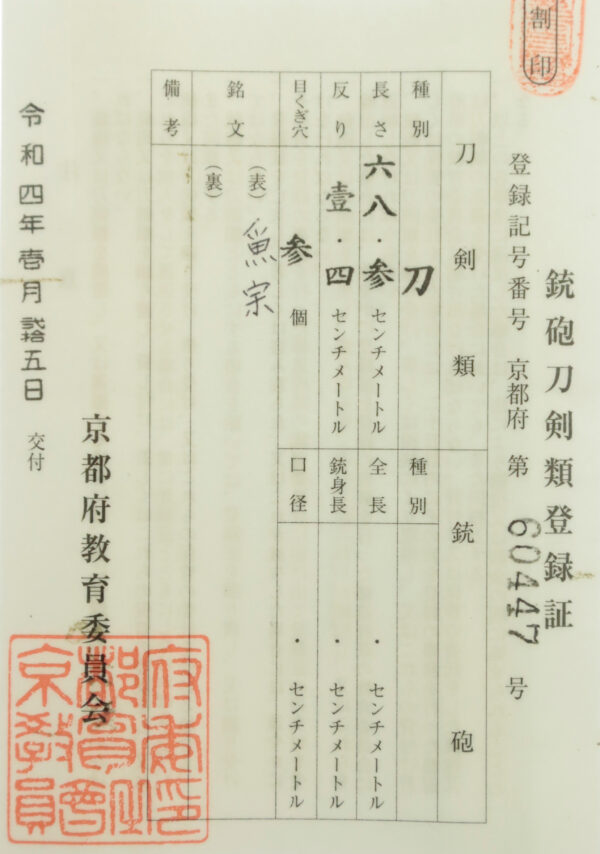 割印
銃砲刀剣類登録証
登録記号番号 京都府 第 60447 号
刀剣類
種別 刀
長さ 六八・参 センチメートル
反り 壹・四 センチメートル
目くぎ穴 参 個
銘文 (表) 魚宗
(裏)
備考
銃砲
種別
全長 ・ センチメートル
銃身長 ・ センチメートル
口径 ・ センチメートル
令和四年壱月弐拾五日 交付
京都府教育委員会